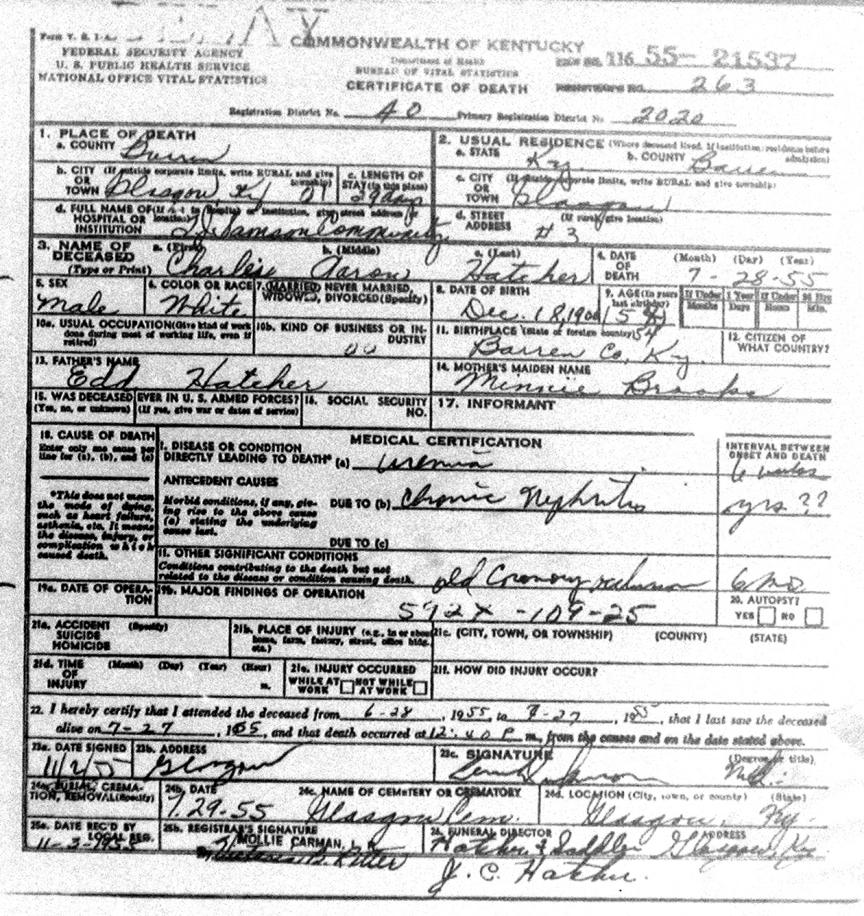 DELAY
Form V. S. 1-A
COMMONWEALTH OF KENTUCKY
FEDERAL SECURITY AGENCY
U. S. PUBLIC HEALTH SERVICE
NATIONAL OFFICE VITAL STATISTICS
Department of Health
BUREAU OF VITAL STATISTICS
CERTIFICATE OF DEATH
FILE NO. 116 55- 21537
REGISTRAR'S NO. 263
Registration District No. 40 Primary Registration District No. 2020
1. PLACE OF DEATH
a. COUNTY Barren
2. USUAL RESIDENCE (Where deceased lived. If institution: residence before admission)
a. STATE Ky. b. COUNTY Barren
b. CITY (If outside corporate limits, write RURAL and give township)
OR TOWN Glasgow Ky 01
c. LENGTH OF STAY (in this place) 29 days
c. CITY (If outside corporate limits, write RURAL and give township)
OR TOWN Glasgow
d. FULL NAME OF (If not in hospital or institution, give street address or location)
HOSPITAL OR INSTITUTION T. J. Samson Community
d. STREET ADDRESS (If rural, give location) # 3
3. NAME OF DECEASED (Type or Print)
a. (First) Charlie b. (Middle) Aaron c. (Last) Hatcher
4. DATE OF DEATH (Month) (Day) (Year) 7-28-55
5. SEX Male
6. COLOR OR RACE White
7. MARRIED, NEVER MARRIED, WIDOWED, DIVORCED (Specify)
8. DATE OF BIRTH Dec. 18, 1900
9. AGE (In years last birthday) 54
If Under 1 Year Months Days If Under 24 Hrs Hours Min.
10a. USUAL OCCUPATION (Give kind of work done during most of working life, even if retired)
10b. KIND OF BUSINESS OR INDUSTRY
11. BIRTHPLACE (State or foreign country) Barren Co, Ky.
12. CITIZEN OF WHAT COUNTRY?
13. FATHER'S NAME Edd Hatcher
14. MOTHER'S MAIDEN NAME Minnie Brooks
15. WAS DECEASED EVER IN U. S. ARMED FORCES?
(Yes, no, or unknown) (If yes, give war or dates of service)
16. SOCIAL SECURITY NO.
17. INFORMANT
18. CAUSE OF DEATH
Enter only one cause per line for (a), (b), and (c)
MEDICAL CERTIFICATION
INTERVAL BETWEEN ONSET AND DEATH
I. DISEASE OR CONDITION DIRECTLY LEADING TO DEATH* (a) uremia 6 weeks
*This does not mean the mode of dying, such as heart failure, asthenia, etc. It means the disease, injury, or complication which caused death.
ANTECEDENT CAUSES
Morbid conditions, if any, giving rise to the above cause (a) stating the underlying cause last.
DUE TO (b) Chronic Nephritis yrs ??
DUE TO (c)
II. OTHER SIGNIFICANT CONDITIONS
Conditions contributing to the death but not related to the disease or condition causing death. old Coronary occlusion 6 mo
19a. DATE OF OPERATION
19b. MAJOR FINDINGS OF OPERATION
592X -109-25
20. AUTOPSY? YES NO
21a. ACCIDENT SUICIDE HOMICIDE (Specify)
21b. PLACE OF INJURY (e.g., in or about home, farm, factory, street, office bldg. etc.)
21c. (CITY, TOWN, OR TOWNSHIP) (COUNTY) (STATE)
21d. TIME OF INJURY (Month) (Day) (Year) (Hour) m.
21e. INJURY OCCURRED WHILE AT WORK NOT WHILE AT WORK
21f. HOW DID INJURY OCCUR?
22. I hereby certify that I attended the deceased from 6-28, 1955, to 7-27, 1955, that I last saw the deceased
alive on 7-27, 1955, and that death occurred at 12:40 P m., from the causes and on the date stated above.
23a. DATE SIGNED 11/2/55
23b. ADDRESS Glasgow
23c. SIGNATURE (Degree or title)
24a. BURIAL, CREMATION, REMOVAL (Specify)
24b. DATE 7.29-55
24c. NAME OF CEMETERY OR CREMATORY Glasgow Cem.
24d. LOCATION (City, town, or county) (State) Glasgow, Ky.
25a. DATE REC'D BY LOCAL REG. 11-3-1955
25b. REGISTRAR'S SIGNATURE
MOLLIE CARMAN
26. FUNERAL DIRECTOR ADDRESS
Hatcher & Saddler Glasgow, Ky.
J. C. Hatcher